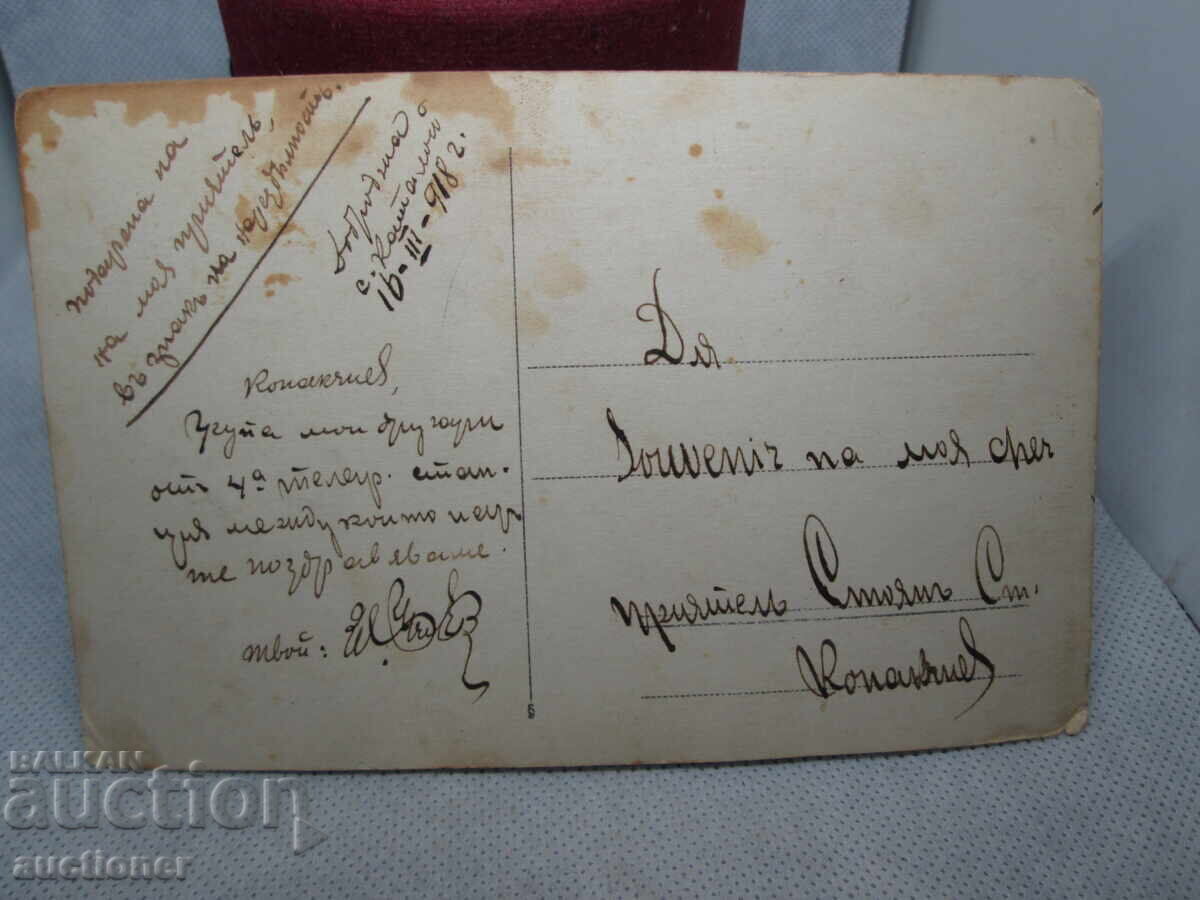 подарена на
на моя приятель,
въ знакъ на
Добродна
с.
16-III-918 г.
Конакчиев,
Група мои другари
отъ 4а телегр. стан-
ция между които и аз
те поздравяваме.
твой:
Для
Souvenir на моя
приятель Стоянъ Ст.
Конакчиев
BALKAN
auction
auctioner